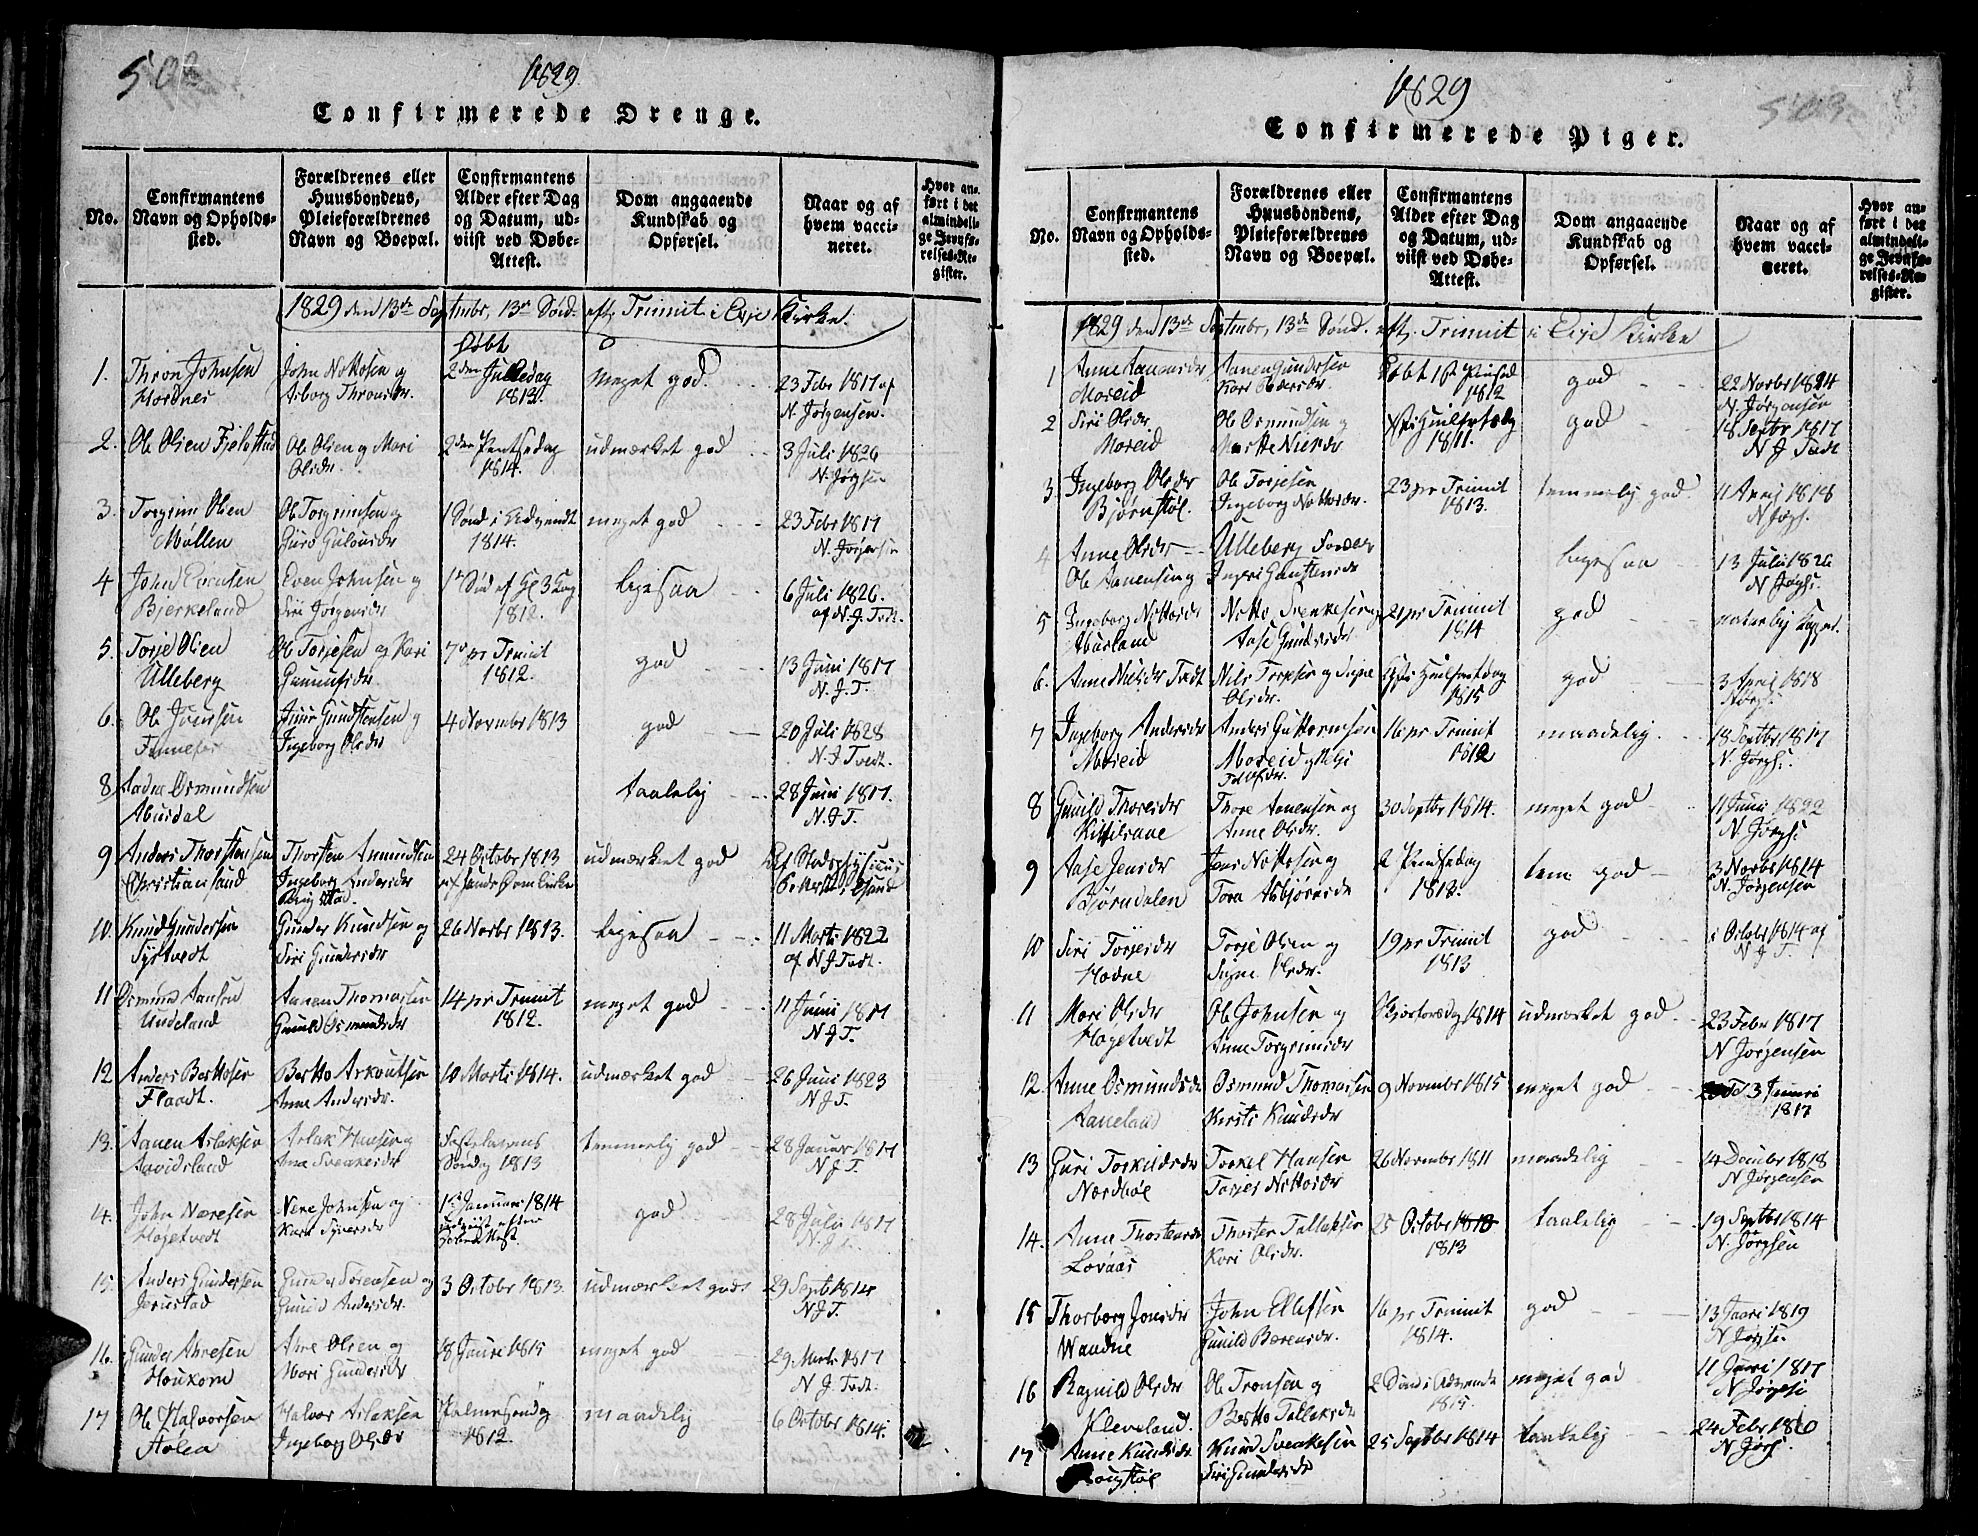 502
1829
Confirmerede Drenge.
No.
Confirmantens
Navn og Opholds-
sted.
Forældrenes eller
Huusbondens,
Pleieforældrenes
Navn og Boepæl.
Confirmantens
Alder efter Dag
og Datum, ud-
viist ved Døbe-
Attest.
Dom angaaende
Kundskab og
Opførsel.
Naar og af
hvem vacci-
neret.
Hvor an-
ført i det
almindeli-
ge Jevnfø-
relses-Re-
gister.
1829 den 13de Septmbr, 13de Sønd. eft. Trinnit. i Evje Kirke.
1. Thron Johnsen
Hordnes
John Nottosen og
Asborg Thronsdr.
døbt
2den Juledag
1813.
meget god.
23 Febr 1817 af
N. Jørgensen.
2. Ole Olsen
Ole Olsen og Mari
Olsdr.
2den Pintsedag
1814.
udmærket god
3 Juli 1826
N. Jørgsen
3. Torgrim Olsen
Møllen
Ole Torgrimsen og
1 Sønd i Advendt
1814.
meget god
23 Febr 1817
N. Jørgensen
4 John Evensen
Bjerkeland
Even Johnsen og
Siri Jørgensdr
1812.
ligesaa
6 Juli 1826.
af N. J. Tvedt.
5. Torje Olsen
Ulleberg
Ole Torjesen og Kari
Gunnufsdr.
7de pr Trinit
1812.
god
13 Juni 1817
N. J. T.
6. Ole
Ingeborg Olsdr
4 Novembr 1813
god
20 Juli 1828
N. J. Tvedt.
8 Aadne Osmundsen
Abusdal
taalelig
28 Juni 1817.
N. J. T.
9 Anders Thorstensen
Christiansand
Thorsten Amundsen
Ingeborg Andersdr
24 October 1813
udmærket god
10. Knud Gundersen
Gunder Knudsen og
Siri Gundersdr
26 Novbr 1813.
ligesaa
11 Marts 1822
af N J Tvedt.
11 Osmund Aansen
Undeland
Aanen Thomassen
Gunild Osmundsdr
14 pr Trinit
1812.
meget god
11 Juni 1817
N J T.
12 Anders Berthosen
Flaadt.
Bertho Arkoutsen
Anne Andersdr.
10 Marts 1814.
udmærket god
26 Juni 1823
N J T.
13. Aanen Aslaksen
Aavidsland
Aslak
Anne Svenkesdr
Fastelavens
Søndag 1813
temmelig god
28 Januar 1817
N J T.
14. John Neresen
Høgetvedt
Nere Johnsen og
Kari Syversdr
1ste Januari 1814
god
28 Juli 1817
N. J. T.
15. Anders Gundersen
Jerustad
Gunder Sørensen og
Gunild Andersdr.
3 October 1813.
udmærket godt
29 Sept 1814
N J T.
16. Gunder Ahresen
Houkom
Ahre Olsen og
Mari Gundersdr
18 Januri 1815
meget god
29 Marts 1817
N J. Tvedt.
17 Ole Halvorsen
Halvor Aslaksen
Ingeborg Olsdr
Palmesøndag
1812.
maadelig
6 October 1814.
1829
503
Confirmerede Piger.
No.
Confirmantens
Navn og Opholds-
sted.
Forældrenes eller
Huusbondens,
Pleieforældrenes
Navn og Boepæl.
Confirmantens
Alder efter Dag
og Datum, ud-
viist ved Døbe-
Attest.
Dom angaaende
Kundskab og
Opførsel.
Naar og af
hvem vacci-
neret.
Hvor an-
ført i det
almindeli-
ge Jevnfø-
relses-Re-
gister.
1829 den 13de Septmbr, 13de Sønd. eft. Trinnit i Evje Kirke
1 Anne Aanensdr
Moreid
Aanen Gundersen
døbt 1st Pintsed
1812
god
22 Novbr 1814
N. Jørgensen
2 Siri Olsdr
Moreid
Ole Osmundsen og
1811.
god
18 Septbr 1817
N J Tvedt
3 Ingeborg Olsdr
Bjørnstøl.
Ole Torjesen
Ingeborg Nottosdr.
23 pr Trinit
1813.
temmelig god.
11 April 1818
N Jørgs.
4 Anne Olsdr
Ole Aanensen og
Ulleberg
ligesaa
13 Juli 1826
N Jørgs.
5 Ingeborg Nottosdr
Abusland
Notto Svenkesen og
Aase Gundersdr
21 pr Trinit
1814
god
naturlig Kopper.
6. Anne Nielsdr Tvedt
Nils Torjesen og Signe
Olsdr.
1815
god
3 April 1818
7 Ingeborg Andersdr
Moreid
Anders Guttormsen
Moreid og
16 pr Trinit
1812
maadelig
18 Septbr 1817
N. Jørgs.
8 Gunild Thoresdr
Thore Aanensen og
Anne Olsdr.
30 Septbr 1814.
meget god
11 Juni 1822
N. Jørgs.
9 Aase Jensdr
Bjørndalen
Jens Nottosen og
Tora Asbjørnsdr
2 Pintsedag
1812.
tem. god
3 Novbr 1814
N. Jørgensen
10 Siri Torjesdr
Hodne
Torje Olsen og
Signe Olsdr.
19 pr Trinit
1813
god
i Octobr 1814 af
N J T.
11 Mari Olsdr
Høgetvedt
Ole Johnsen og
Anne Torgrimsdr
1814
udmærket god
23 Febr 1817
N Jørgensen
12. Anne Osmundsdr
Osmund Thomassen
Kirsti Knudsdr
9 Novembr 1815
meget god
3 Januri
1817
13 Guri Torkildsdr
Nordbøe
Torkel Hansen
Torjer Nottosdr
26 Novembr 1811
maadelig
14 Decmbr 1818
N Jørgensen
14. Anne Thorstensdr
Lovaas
Thorsten Tallaksen
Kari Olsdr.
25 Octobr 1818
1813
taalelig
19 Septbr 1814
N. Jørgsen
15 Thorborg Jonsdr
Waadne
John Ellefsen
Gunild Berensdr.
16 pr Trinit
1814.
god
13 Jaari 1819
N Jørgs.
16 Ragnild Olsdr
Kleveland.
Ole Tronsen og
Berthe Tallaksdr
2 Sønd i Advendt
1815.
meget god
11 Juni 1817
N Jørgs
17 Anne Knudsdr
Knud Svenkesen
Siri Gundersdr
25 Septbr 1814
taalelig
24 Febr 1820
N Jørgs.